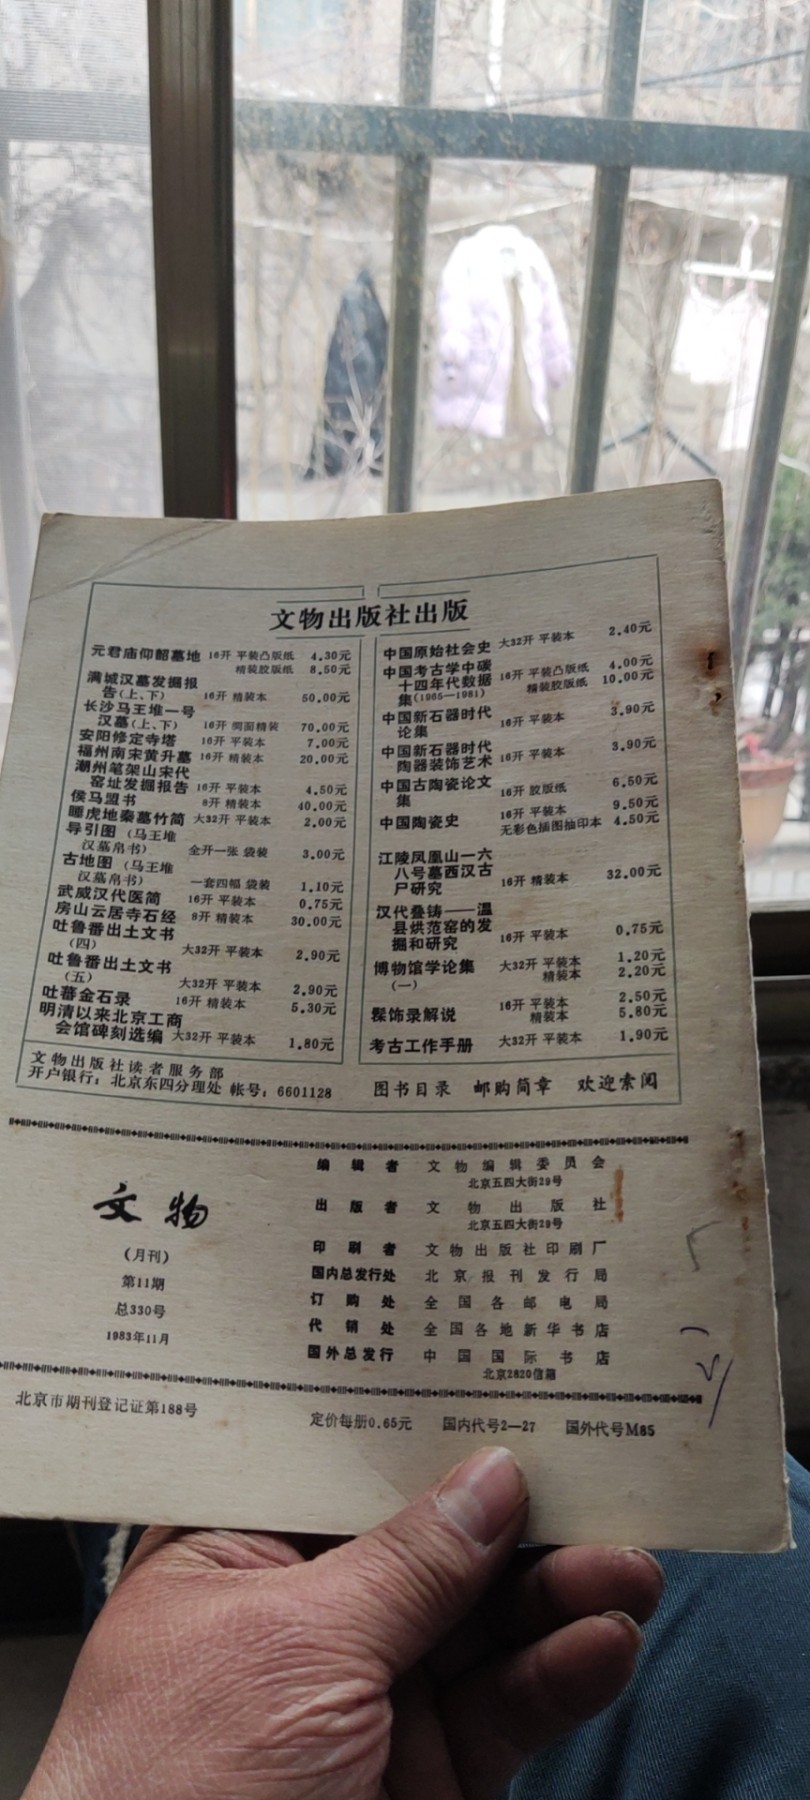 文物出版社出版
元君庙仰韶墓地 16开 平装凸版纸 4.30元
精装胶版纸 8.50元
满城汉墓发掘报
告(上、下) 16开 精装本 50.00元
长沙马王堆一号
汉墓(上、下) 16开 绸面精装 70.00元
安阳修定寺塔 16开 平装本 7.00元
福州南宋黄升墓 16开 精装本 20.00元
潮州笔架山宋代
窑址发掘报告 16开 平装本 4.50元
侯马盟书 8开 精装本 40.00元
睡虎地秦墓竹简 大32开 平装本 2.00元
导引图（马王堆
汉墓帛书） 全开一张 袋装 3.00元
古地图（马王堆
汉墓帛书） 一套四幅 袋装 1.10元
武威汉代医简 16开 平装本 0.75元
房山云居寺石经 8开 精装本 30.00元
吐鲁番出土文书
(四) 大32开 平装本 2.90元
吐鲁番出土文书
(五) 大32开 平装本 2.90元
吐蕃金石录 16开 精装本 5.30元
明清以来北京工商
会馆碑刻选编 大32开 平装本 1.80元
中国原始社会史 大32开 平装本 2.40元
中国考古学中碳
十四年代数据 16开 平装凸版纸 4.00元
集(1965—1981) 精装胶版纸 10.00元
中国新石器时代
论集 16开 平装本 3.90元
中国新石器时代
陶器装饰艺术 16开 平装本 3.90元
中国古陶瓷论文
集 16开 胶版纸 6.50元
中国陶瓷史 16开 平装本 9.50元
无彩色插图抽印本 4.50元
江陵凤凰山一六
八号墓西汉古
尸研究 16开 精装本 32.00元
汉代叠铸——温
县烘范窑的发
掘和研究 16开 平装本 0.75元
博物馆学论集 大32开 平装本 1.20元
(一) 精装本 2.20元
髹饰录解说 16开 平装本 2.50元
精装本 5.80元
考古工作手册 大32开 平装本 1.90元
文物出版社读者服务部
开户银行：北京东四分理处 帐号：6601128
图书目录 邮购简章 欢迎索阅
文物
(月刊)
第11期
总330号
1983年11月
编辑者 文物编辑委员会
北京五四大街29号
出版者 文物出版社
北京五四大街29号
印刷者 文物出版社印刷厂
国内总发行处 北京报刊发行局
订购处 全国各邮电局
代销处 全国各地新华书店
国外总发行 中国国际书店
北京2820信箱
北京市期刊登记证第188号
定价每册0.65元 国内代号2—27 国外代号M85